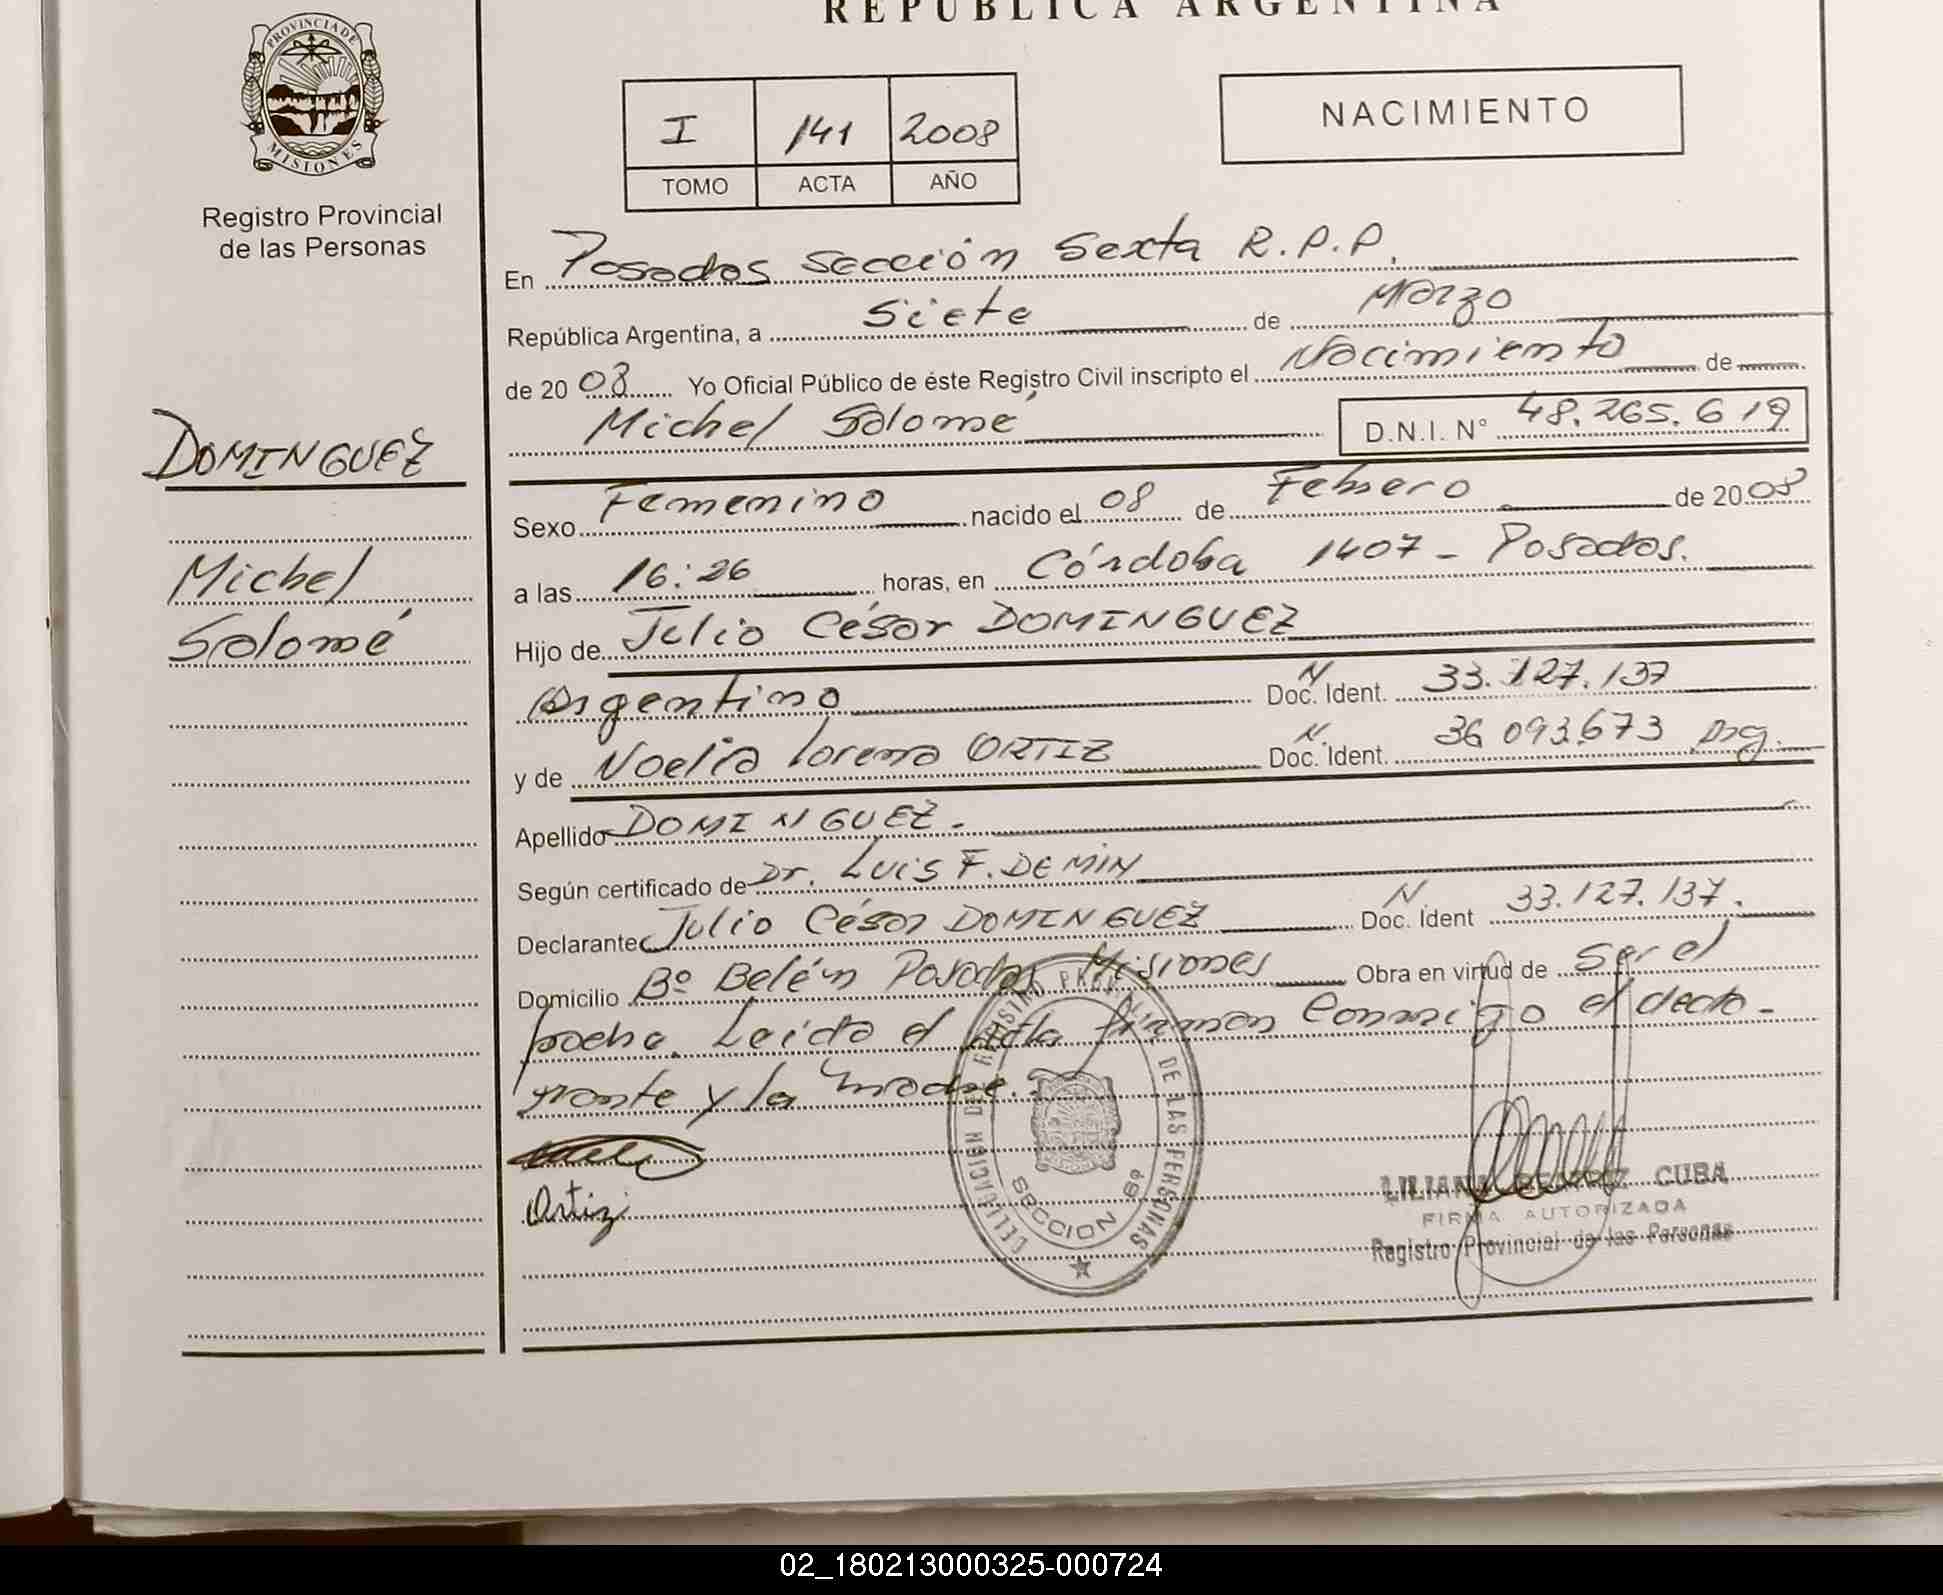 REPÚBLICA ARGENTINA
PROVINCIA DE
MISIONES
Registro Provincial
de las Personas
I 141 2008
TOMO ACTA AÑO
NACIMIENTO
En Posadas Sección Sexta R.P.P.
República Argentina, a Siete de Marzo
de 2008 Yo Oficial Público de éste Registro Civil inscripto el Nacimiento de
Michel Salomé D.N.I. N° 48.265.619
DOMINGUEZ
Michel
Salomé
Sexo Femenino nacido el 08 de Febrero de 2008
a las 16:26 horas, en Córdoba 1407 - Posadas.
Hijo de Julio César DOMINGUEZ
Argentino N Doc. Ident. 33.127.137
y de Noelia Lorena ORTIZ N. Doc. Ident. 36.093.673 Arg.
Apellido DOMINGUEZ.
Según certificado de Dr. Luis F. DEMIN
Declarante Julio César DOMINGUEZ N. Doc. Ident 33.127.137.
Domicilio Bº Belén Posadas Misiones Obra en virtud de Ser el
padre. Leída el Acta firman Conmigo el decla-
rante y la madre.
Ortiz
DELEGACION DEL REGISTRO PROVINCIAL DE LAS PERSONAS
SECCION 6º
LILIANA BEATRIZ CUBA
FIRMA AUTORIZADA
Registro Provincial de las Personas
02_180213000325-000724